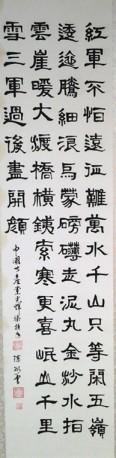 紅軍不怕遠征難萬水千山只等閑五嶺
逶迤騰細浪烏蒙磅礴走泥丸金沙水拍
雲崖暖大渡橋橫鐵索寒更喜岷山千里
雪三軍過後盡開顏